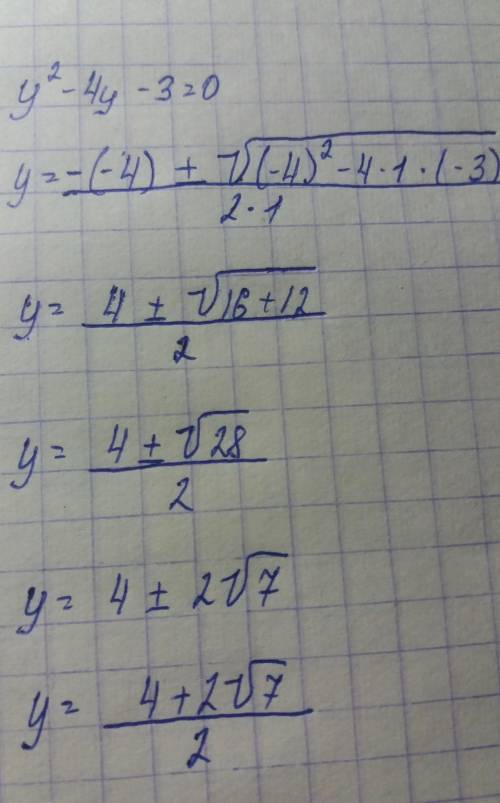 y² - 4y - 3 = 0
y = -(-4) ± √(-4)² - 4 · 1 · (-3)
2 · 1
y = 4 ± √16 + 12
2
y = 4 ± √28
2
y = 4 ± 2√7
y = 4 + 2√7
2